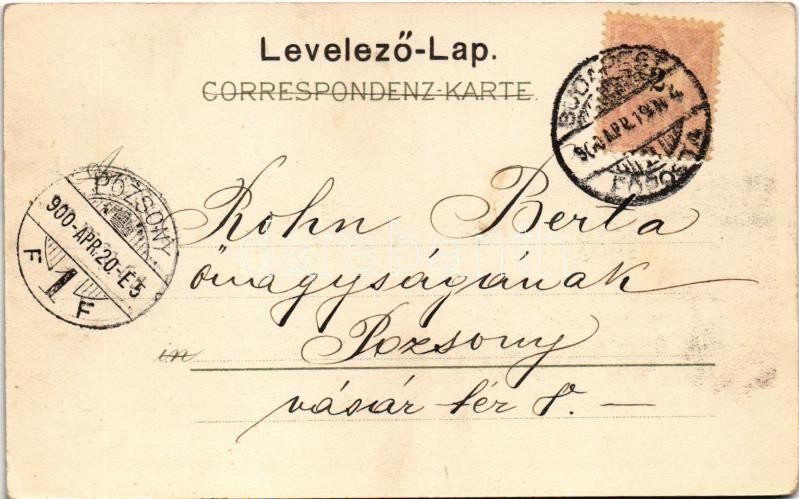 Levelező-Lap.
CORRESPONDENZ-KARTE.
2
BUDAPEST
900 APR. 19. N 4
FŐPOSTA
POZSONY.
900-APR. 20-E 5
F 1 F
Kohn Berta
őnagyságának
in Pozsony
vásár tér 8. —
darabanth